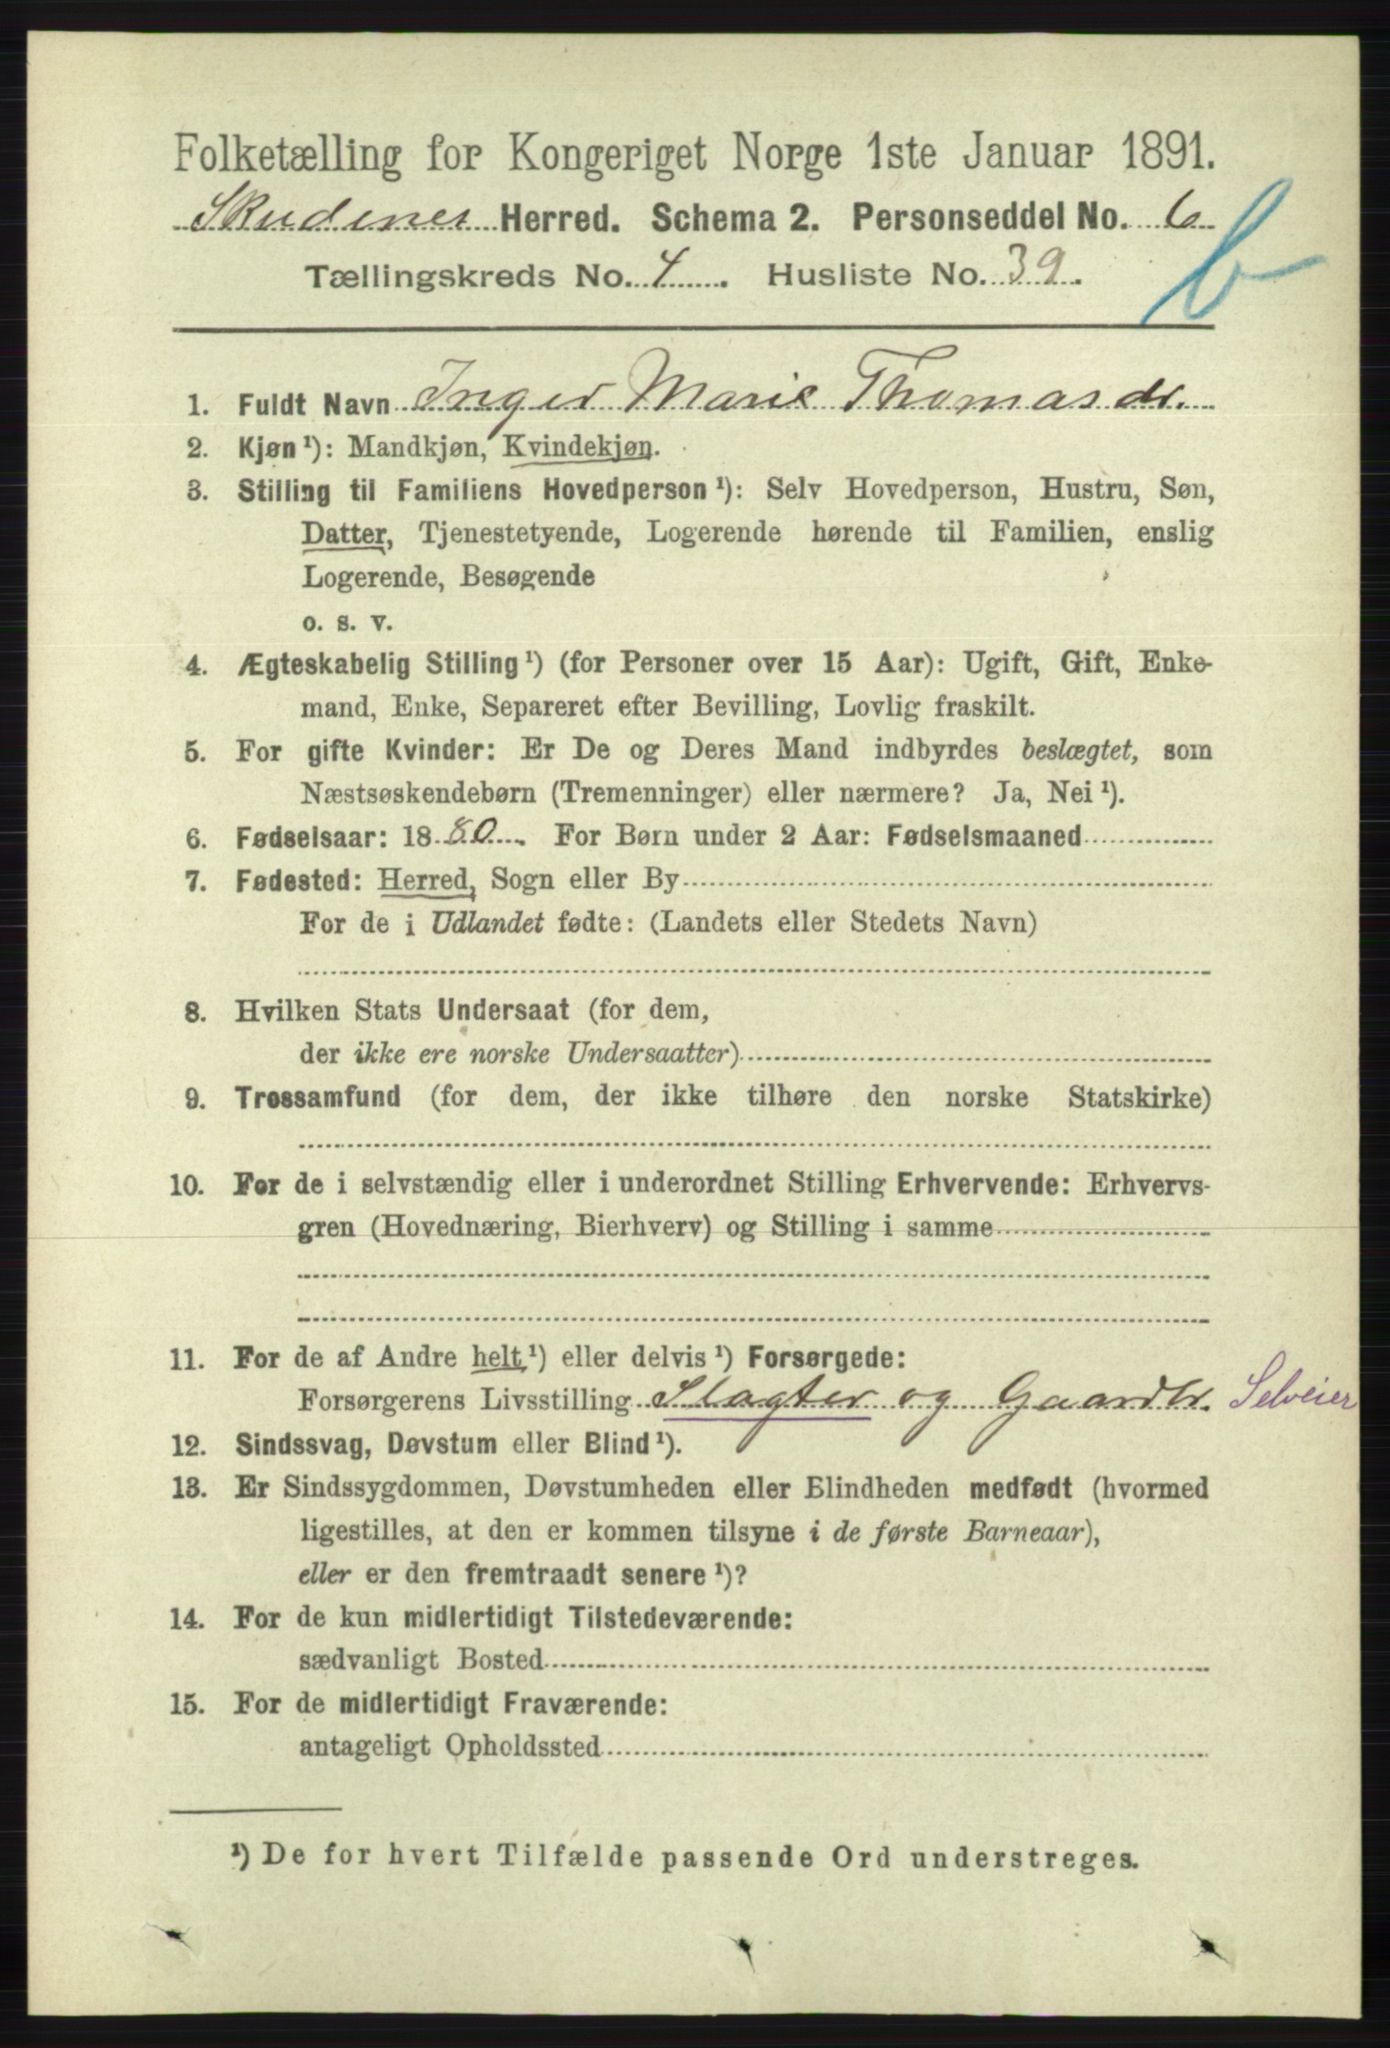 Folketælling for Kongeriget Norge 1ste Januar 1891.
Skudenes Herred. Schema 2. Personseddel No. 6
b
Tællingskreds No. 4. Husliste No. 39.
1. Fuldt Navn Inger Marie Thomasdr.
2. Kjøn ¹): Mandkjøn, Kvindekjøn.
3. Stilling til Familiens Hovedperson ¹): Selv Hovedperson, Hustru, Søn,
Datter, Tjenestetyende, Logerende hørende til Familien, enslig
Logerende, Besøgende
o. s. v.
4. Ægteskabelig Stilling ¹) (for Personer over 15 Aar): Ugift, Gift, Enke-
mand, Enke, Separeret efter Bevilling, Lovlig fraskilt.
5. For gifte Kvinder: Er De og Deres Mand indbyrdes beslægtet, som
Næstsøskendebørn (Tremenninger) eller nærmere? Ja, Nei ¹).
6. Fødselsaar: 1880. For Børn under 2 Aar: Fødselsmaaned
7. Fødested: Herred, Sogn eller By
For de i Udlandet fødte: (Landets eller Stedets Navn)
8. Hvilken Stats Undersaat (for dem,
der ikke ere norske Undersaatter)
9. Trossamfund (for dem, der ikke tilhøre den norske Statskirke)
10. For de i selvstændig eller i underordnet Stilling Erhvervende: Erhvervs-
gren (Hovednæring, Bierhverv) og Stilling i samme
11. For de af Andre helt ¹) eller delvis ¹) Forsørgede:
Forsørgerens Livsstilling Slagter og Gaardbr. Selveier
12. Sindssvag, Døvstum eller Blind ¹).
13. Er Sindssygdommen, Døvstumheden eller Blindheden medfødt (hvormed
ligestilles, at den er kommen tilsyne i de første Barneaar),
eller er den fremtraadt senere ¹)?
14. For de kun midlertidigt Tilstedeværende:
sædvanligt Bosted
15. For de midlertidigt Fraværende:
antageligt Opholdssted
¹) De for hvert Tilfælde passende Ord understreges.